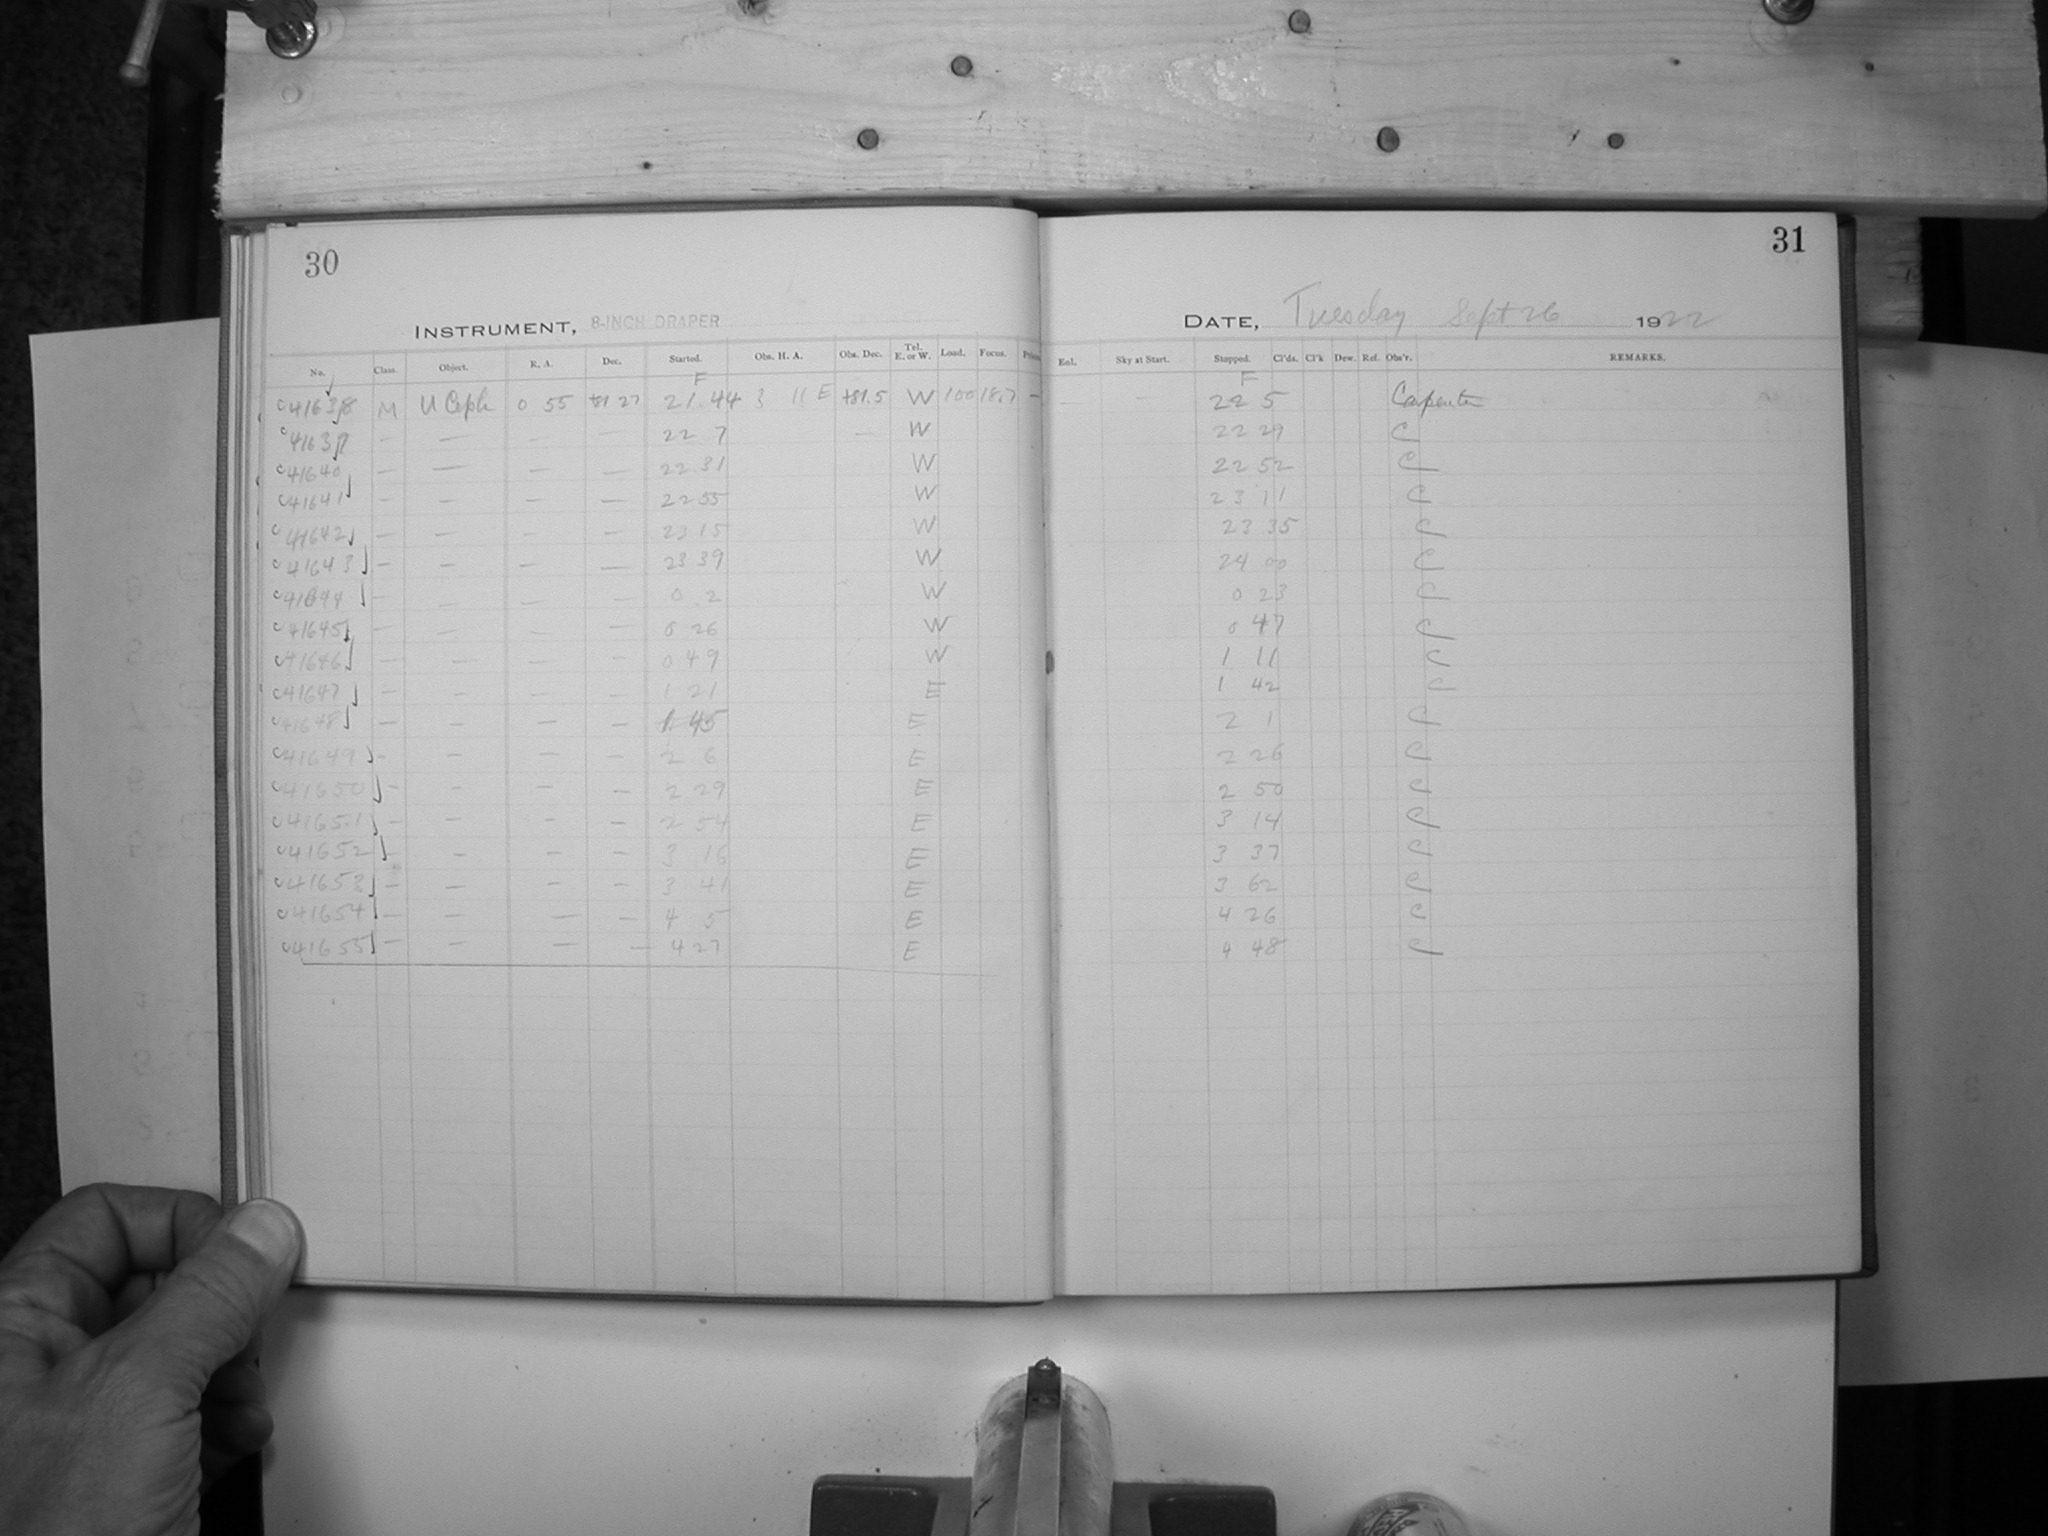 30
INSTRUMENT, 8-INCH DRAPER
No. Class. Object. R. A. Dec. Started. Obs. H. A. Obs. Dec. Tel. E. or W. Load. Focus.
F
C41638 M U Ceph 0 55 +81 27 21.44 3 11 E +81.5 W 100 18.7 —
C41639 — — — — 22 7 — W
C41640 — — — — 22 31 W
C41641 — — — — 22 55 W
C41642 — — — — 23 15 W
C41643 — — — — 23 39 W
C41644 — — — — 0 2 W
C41645 — — — — 0 26 W
C41646 — — — — 0 49 W
C41647 — — — — 1 21 E
C41648 — — — — 1 45 E
C41649 — — — — 2 6 E
C41650 — — — — 2 29 E
C41651 — — — — 2 54 E
C41652 — — — — 3 16 E
C41653 — — — — 3 41 E
C41654 — — — — 4 5 E
C41655 — — — — 4 27 E
31
DATE, Tuesday Sept 26 1922
Eol. Sky at Start. Stopped. Cl'ds. Cl'k Dew. Ref. Obs'r. REMARKS.
F
— — 22 5 Carpenter
22 29 C
22 52 C
23 11 C
23 35 C
24 00 C
0 23 C
0 47 C
1 11 C
1 42 C
2 1 C
2 26 C
2 50 C
3 14 C
3 37 C
3 62 C
4 26 C
4 48 C